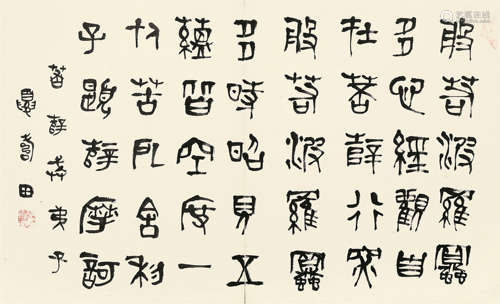 般若波羅蜜
多心經觀自
在菩薩行深
般若波羅蜜
多時照見五
蘊皆空度一
切苦厄舍利
子題薩摩訶
菩薩戒弟子
壽田